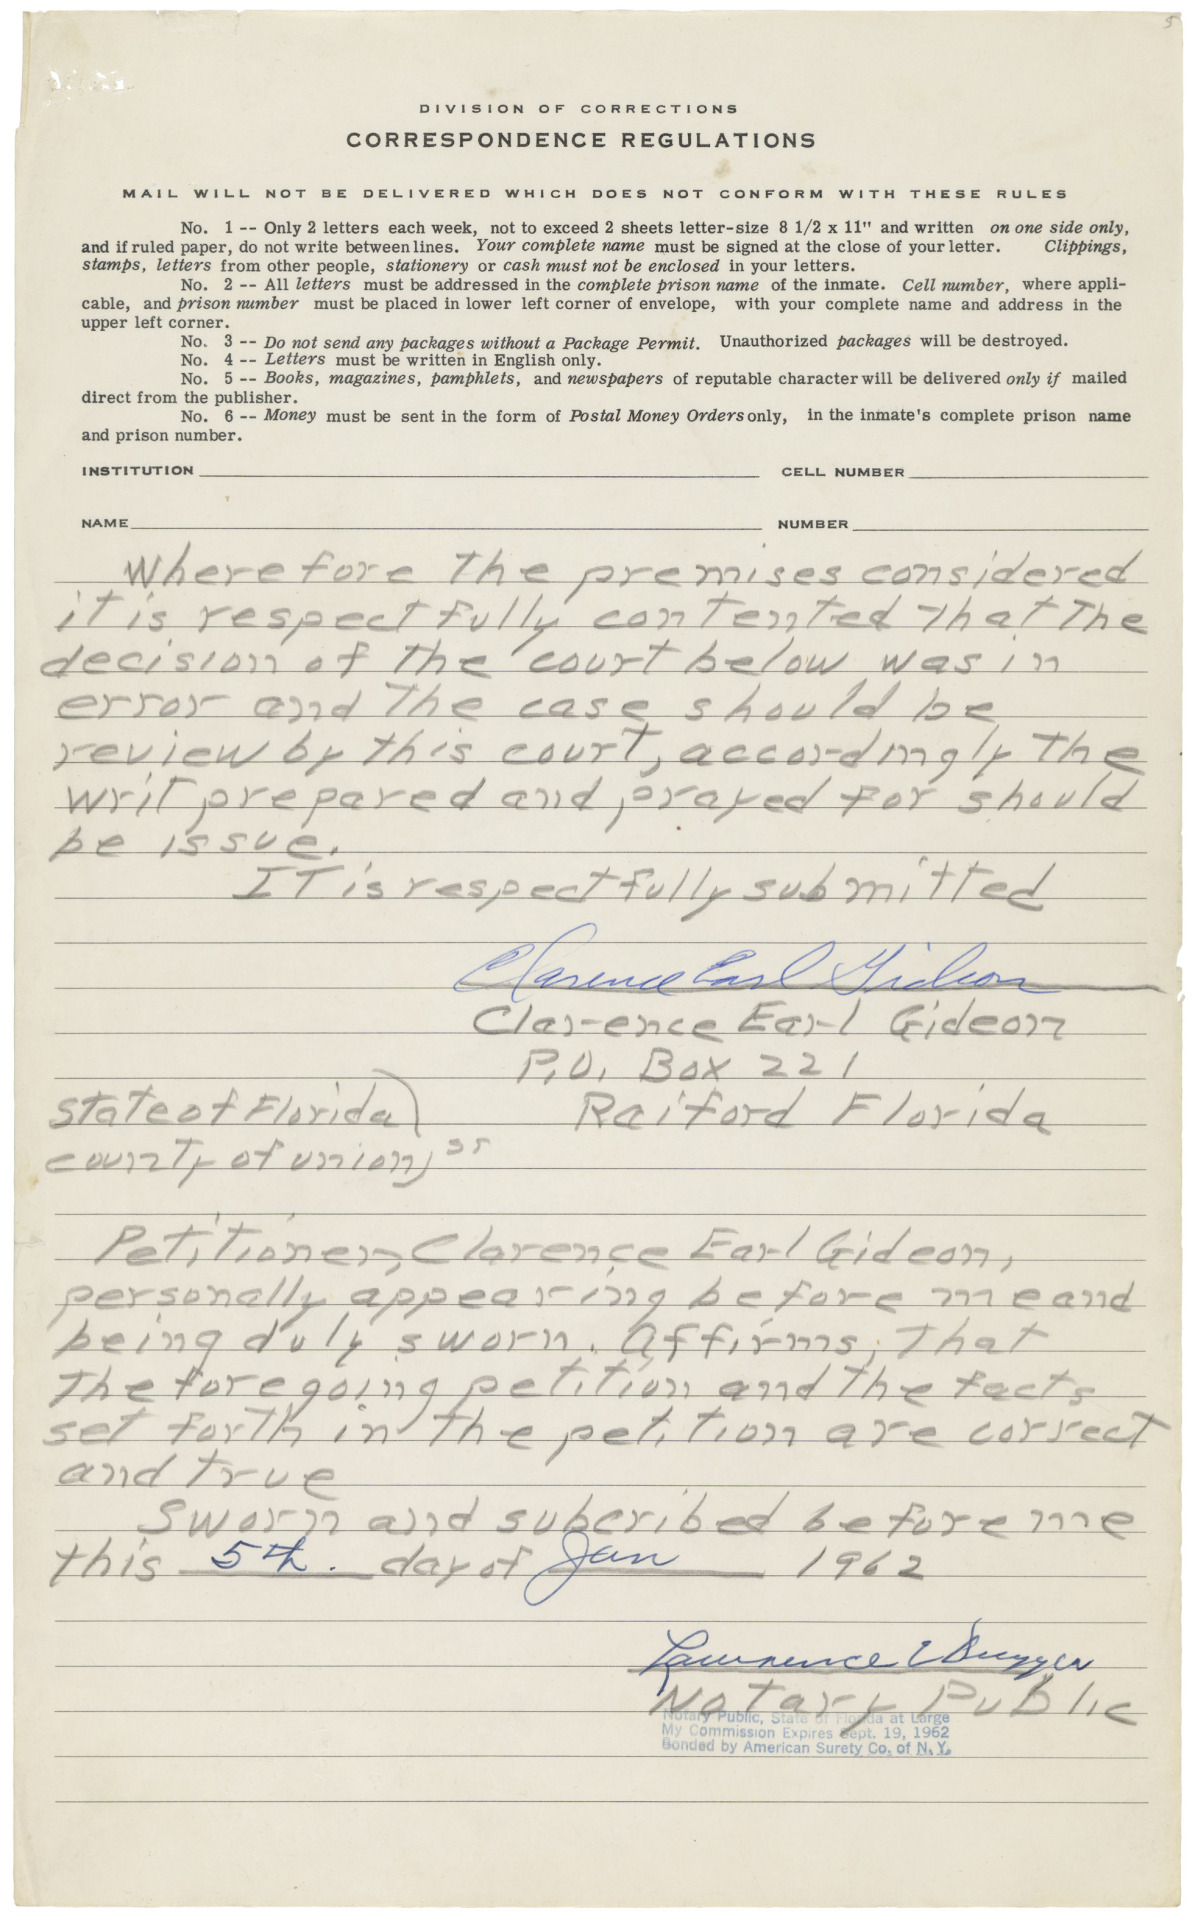 5
DIVISION OF CORRECTIONS
CORRESPONDENCE REGULATIONS
MAIL WILL NOT BE DELIVERED WHICH DOES NOT CONFORM WITH THESE RULES
No. 1 -- Only 2 letters each week, not to exceed 2 sheets letter-size 8 1/2 x 11" and written on one side only,
and if ruled paper, do not write between lines. Your complete name must be signed at the close of your letter. Clippings,
stamps, letters from other people, stationery or cash must not be enclosed in your letters.
No. 2 -- All letters must be addressed in the complete prison name of the inmate. Cell number, where appli-
cable, and prison number must be placed in lower left corner of envelope, with your complete name and address in the
upper left corner.
No. 3 -- Do not send any packages without a Package Permit. Unauthorized packages will be destroyed.
No. 4 -- Letters must be written in English only.
No. 5 -- Books, magazines, pamphlets, and newspapers of reputable character will be delivered only if mailed
direct from the publisher.
No. 6 -- Money must be sent in the form of Postal Money Orders only, in the inmate's complete prison name
and prison number.
INSTITUTION CELL NUMBER
NAME NUMBER
Wherefore the premises considered
it is respectfully contented that the
decision of the court below was in
error and the case should be
review by this court, accordingly the
writ prepared and prayed for should
be issue.
IT is respectfully submitted
Clarence Earl Gideon
Clarence Earl Gideon
P.O. Box 221
State of Florida) Raiford Florida
county of union) ss
Petitioner, Clarence Earl Gideon,
personally appearing before me and
being duly sworn. Affirms, that
the foregoing petition and the facts
set forth in the petition are correct
and true
Sworn and subcribed before me
this 5th. day of Jan 1962
Lawrence E Dugger
Notary Public
Notary Public, State of Florida at Large
My Commission Expires Sept. 19, 1962
Bonded by American Surety Co. of N. Y.